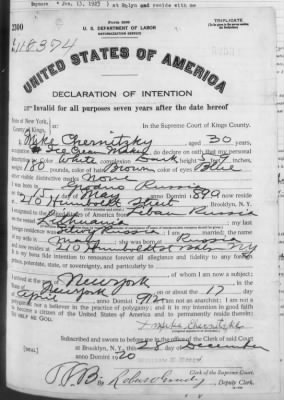 Form 2203
TRIPLICATE
U. S. DEPARTMENT OF LABOR
NATURALIZATION SERVICE
118374
UNITED STATES OF AMERICA
DECLARATION OF INTENTION
Invalid for all purposes seven years after the date hereof
State of New York,
County of Kings,
In the Supreme Court of Kings County.
I, Mike Chernitzky, aged 30 years,
occupation Ice Cream Maker, do declare on oath that my personal
description is: Color White, complexion Dark, height 5 feet 7 inches,
weight 180 pounds, color of hair Brown, color of eyes Blue
other visible distinctive marks None
I was born in Grodno Russia
on the day of May, anno Domini 1890; now reside
at 210 Humboldt Street Brooklyn, N. Y.
I emigrated to the United States of America from Libau Russia
on the vessel Lithuania; my last
foreign residence was Russia; I am married; the name
of my wife is Mary; she was born at Russia
and now resides at 210 Humboldt St. NY
It is my bona fide intention to renounce forever all allegiance and fidelity to any foreign
prince, potentate, state, or sovereignty, and particularly to
of whom I am now a subject;
I arrived at the port of New York, in the
State of New York, on or about the 17 day
of April, anno Domini 1912; I am not an anarchist; I am not a
polygamist nor a believer in the practice of polygamy; and it is my intention in good faith
to become a citizen of the United States of America and to permanently reside therein:
SO HELP ME GOD.
Mike Chernitzki
Subscribed and sworn to before me in the office of the Clerk of said Court
[SEAL] at Brooklyn, N. Y., this 28 day of December
anno Domini 1920
Clerk of the Supreme Court.
Deputy Clerk.